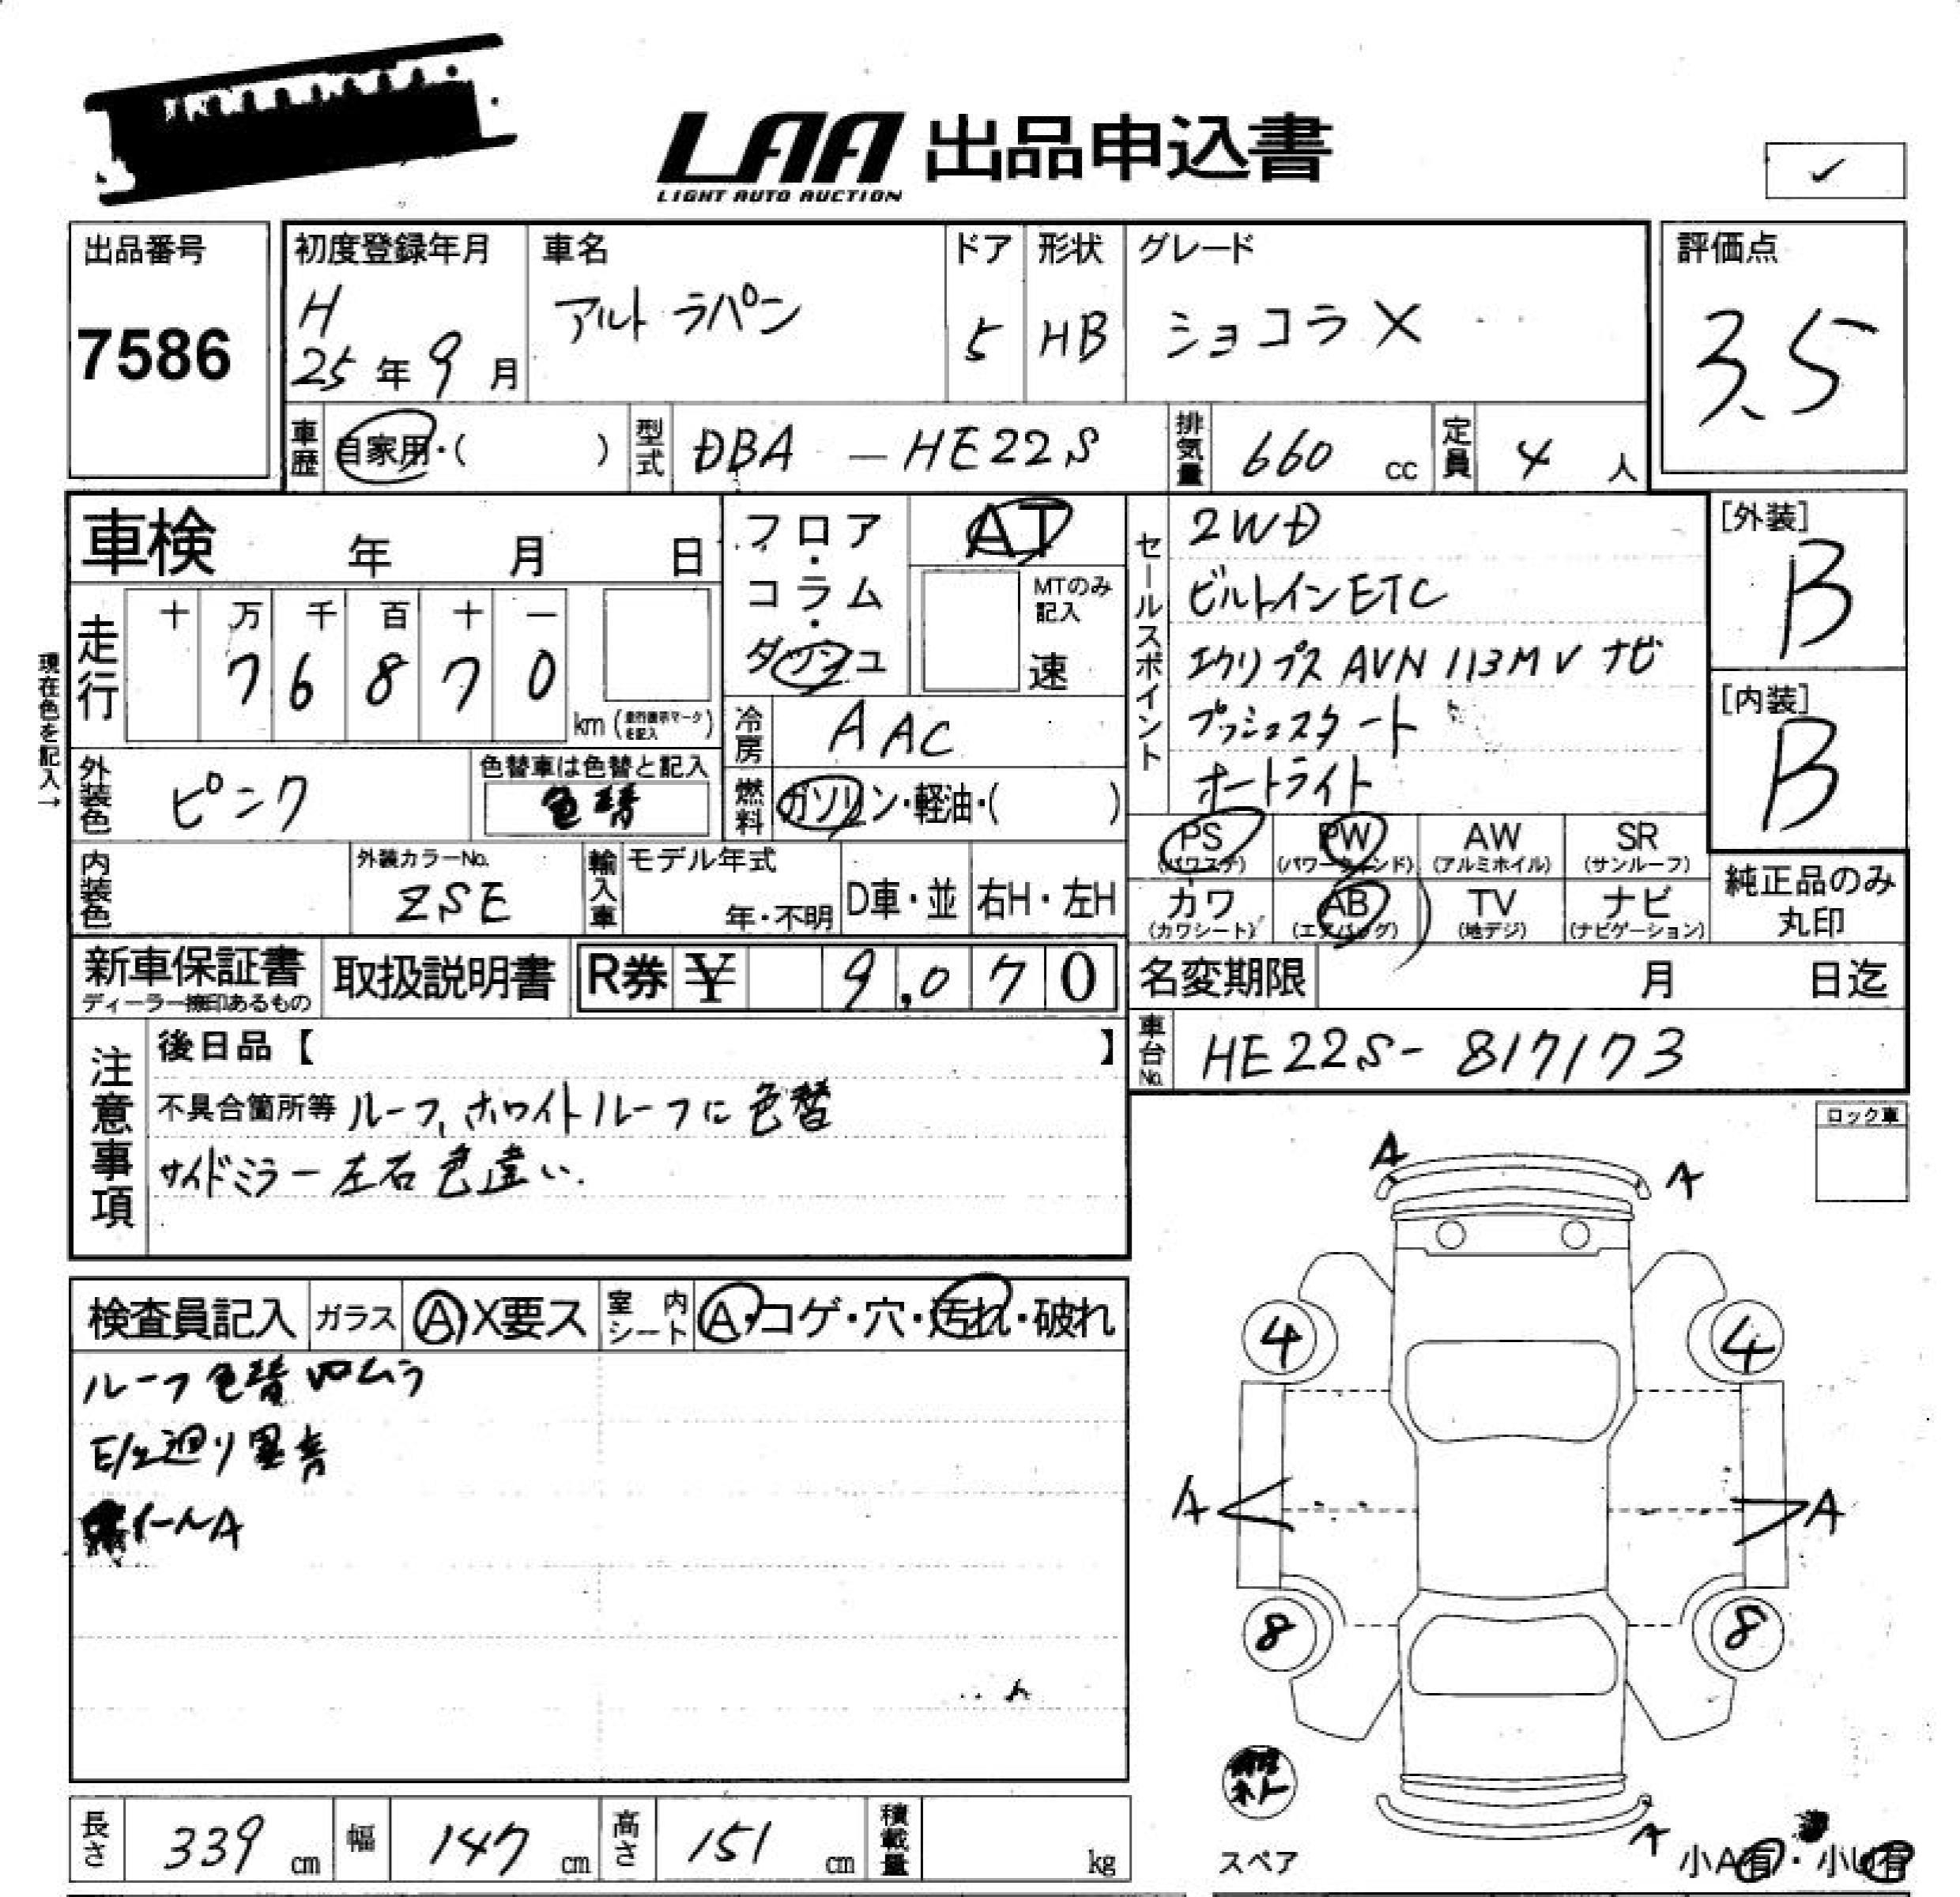 LAA 出品申込書
LIGHT AUTO AUCTION
✓
出品番号
7586
初度登録年月
H
25年 9月
車名
アルト ラパン
ドア
5
形状
HB
グレード
ショコラ X
評価点
3.5
車歴
自家用・( )
型式
DBA - HE22S
排気量
660 cc
定員
4 人
車検 年 月 日
フロア・コラム・ダッシュ
AT
MTのみ記入
速
走行
十 万 千 百 十 一
7 6 8 7 0
km(走行表示マークを記入)
現在色を記入→
冷房
AAC
外装色
ピンク
色替車は色替と記入
色替
燃料
ガソリン・軽油・( )
内装色
外装カラーNo.
ZSE
輸入車
モデル年式
年・不明
D車・並
右H・左H
セールスポイント
2WD
ビルトインETC
エクリプス AVN 113MV ナビ
プッシュスタート
オートライト
[外装]
B
[内装]
B
PS
(パワステ)
PW
(パワーウィンド)
AW
(アルミホイル)
SR
(サンルーフ)
カワ
(カワシート)
AB
(エアバッグ)
TV
(地デジ)
ナビ
(ナビゲーション)
純正品のみ
丸印
新車保証書
ディーラー捺印あるもの
取扱説明書
R券 ¥ 9,070
名変期限 月 日迄
車台No.
HE22S-817173
注意事項
後日品【 】
不具合箇所等 ルーフ,ホワイトルーフに色替
サイドミラー左右色違い.
ロック車
検査員記入
ガラス
A・X要ス
室内シート
A・コゲ・穴・汚れ・破れ
ルーフ色替 凹ムラ
E/g廻り異音
ホイールA
A
A
4
4
A
A
8
8
A
スペア
小A有・小U有
長さ
339 cm
幅
147 cm
高さ
151 cm
積載量
kg